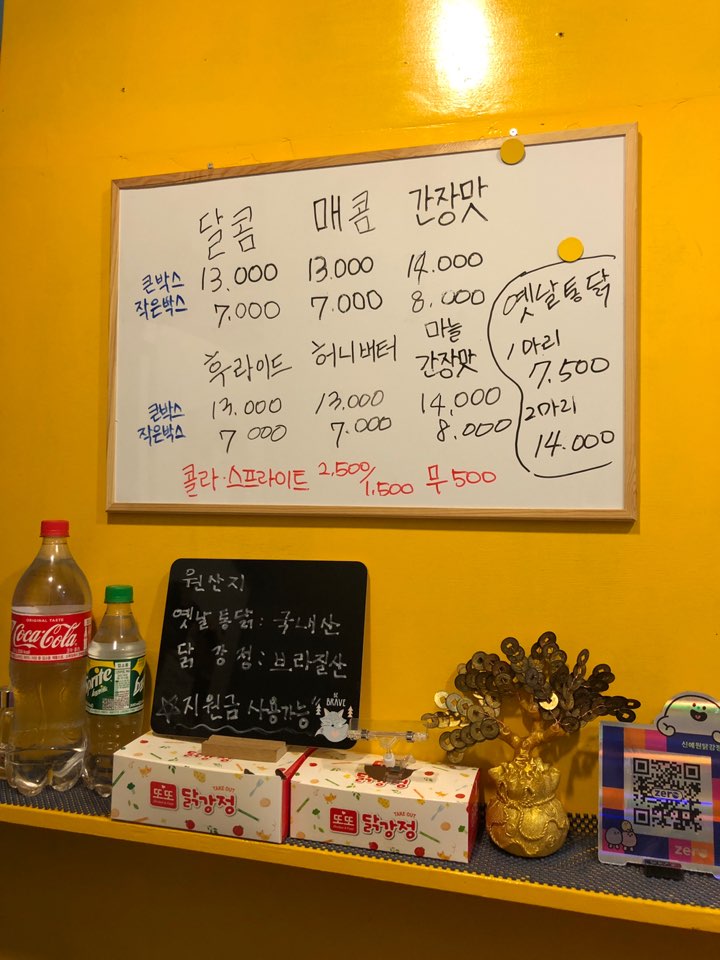 달콤 매콤 간장맛
큰박스 13.000 13.000 14.000
작은박스 7.000 7.000 8.000
후라이드 허니버터 마늘 간장맛
큰박스 13.000 13.000 14,000
작은박스 7 000 7.000 8.000
콜라·스프라이트 2,500/1,500 무 500
옛날통닭
1마리
7.500
2마리
14.000
원산지
옛날통닭: 국내산
닭강정:브라질산
☆지원금 사용가능"
BE BRAVE
ORIGINAL TASTE
Coca-Cola
Sprite
TAKE OUT
또또 닭강정
TAKE OUT
또또 닭강정
zero
zero